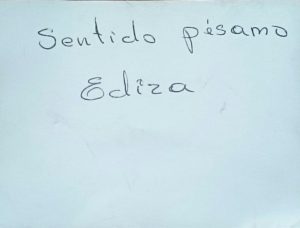 Sentido pésamo
Ediza